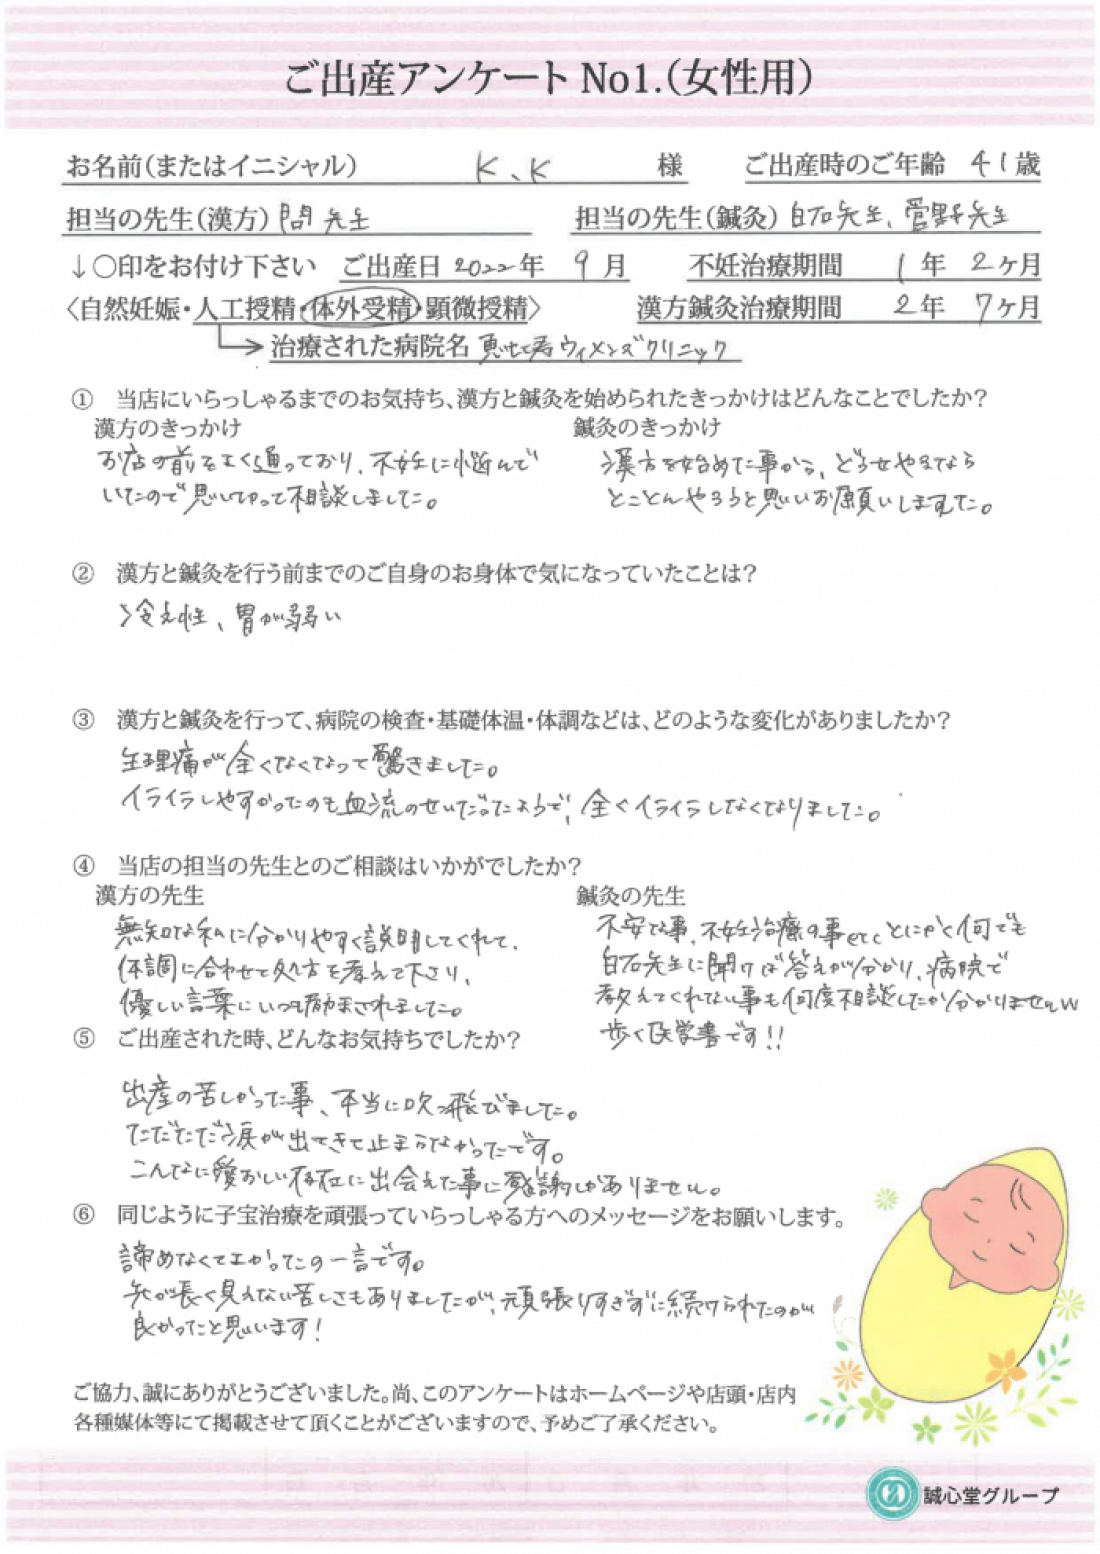 ご出産アンケート No1.(女性用)
お名前(またはイニシャル) K、K 様 ご出産時のご年齢 41歳
担当の先生(漢方) 間先生 担当の先生(鍼灸) 白石先生、菅野先生
↓〇印をお付け下さい ご出産日 2022年 9月 不妊治療期間 1年 2ヶ月
〈自然妊娠・人工授精・体外受精・顕微授精〉 漢方鍼灸治療期間 2年 7ヶ月
治療された病院名 恵比寿ウィメンズクリニック
① 当店にいらっしゃるまでのお気持ち、漢方と鍼灸を始められたきっかけはどんなことでしたか?
漢方のきっかけ 鍼灸のきっかけ
お店の前をよく通っており、不妊に悩んで
いたので思い切って相談しました。
漢方を始めた事から、どうせやるなら
とことんやろうと思いお願いしました。
② 漢方と鍼灸を行う前までのご自身のお身体で気になっていたことは?
冷え性、胃が弱い
③ 漢方と鍼灸を行って、病院の検査・基礎体温・体調などは、どのような変化がありましたか?
生理痛が全くなくなって驚きました。
イライラしやすかったのも血流のせいだったようで、全くイライラしなくなりました。
④ 当店の担当の先生とのご相談はいかがでしたか?
漢方の先生 鍼灸の先生
無知な私に分かりやすく説明してくれて、
体調に合わせて処方を考えて下さり、
優しい言葉にいつも励まされました。
不安な事、不妊治療の事etcとにかく何でも
白石先生に聞けば答えが分かり、病院で
教えてくれない事も何度相談したか分かりませんw
歩く医学書です!!
⑤ ご出産された時、どんなお気持ちでしたか?
出産の苦しかった事、本当に吹っ飛びました。
ただただ涙が出てきて止まらなかったです。
こんなに愛おしい存在に出会えた事に感謝しかありません。
⑥ 同じように子宝治療を頑張っていらっしゃる方へのメッセージをお願いします。
諦めなくてよかったの一言です。
先が長く見えない苦しさもありましたが、頑張りすぎずに続けられたのが
良かったと思います!
ご協力、誠にありがとうございました。尚、このアンケートはホームページや店頭・店内
各種媒体等にて掲載させて頂くことがございますので、予めご了承ください。
誠心堂グループ